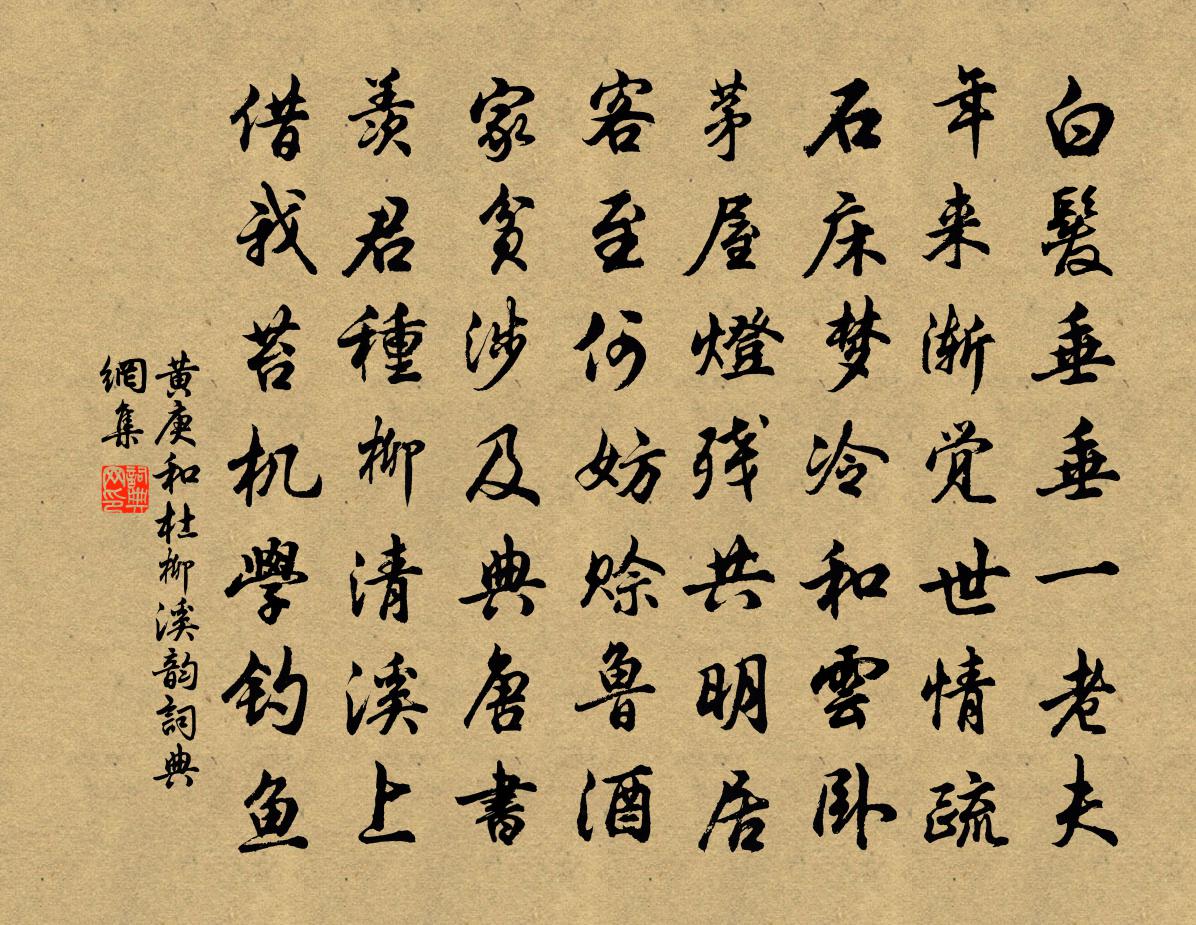 白髮垂垂一老夫
年来渐觉世情疏
石床梦冷和雲卧
茅屋燈残共明居
客至何妨赊魯酒
家贫涉及典唐書
羨君種柳清溪上
借我苔机學钓鱼
黃庚和杜柳溪韵詞典
網集
詞典
网印